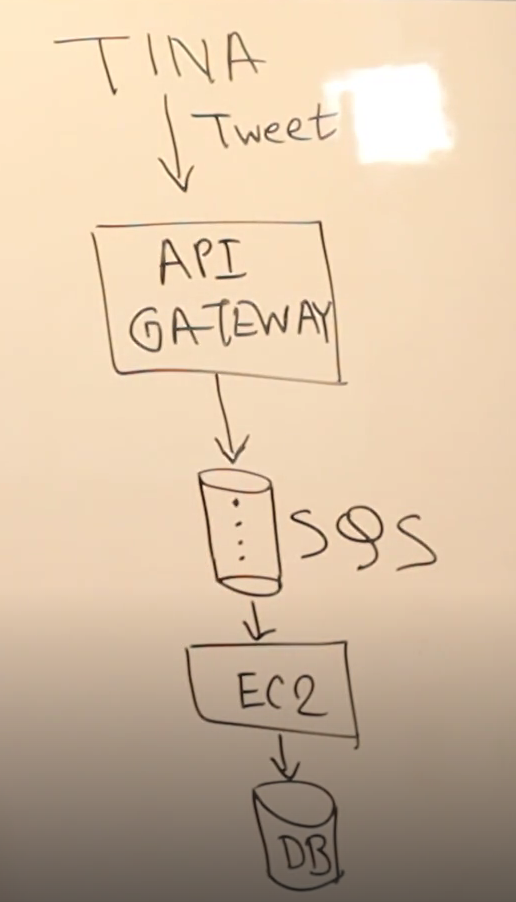 TINA
Tweet
API
GATEWAY
SQS
EC2
DB